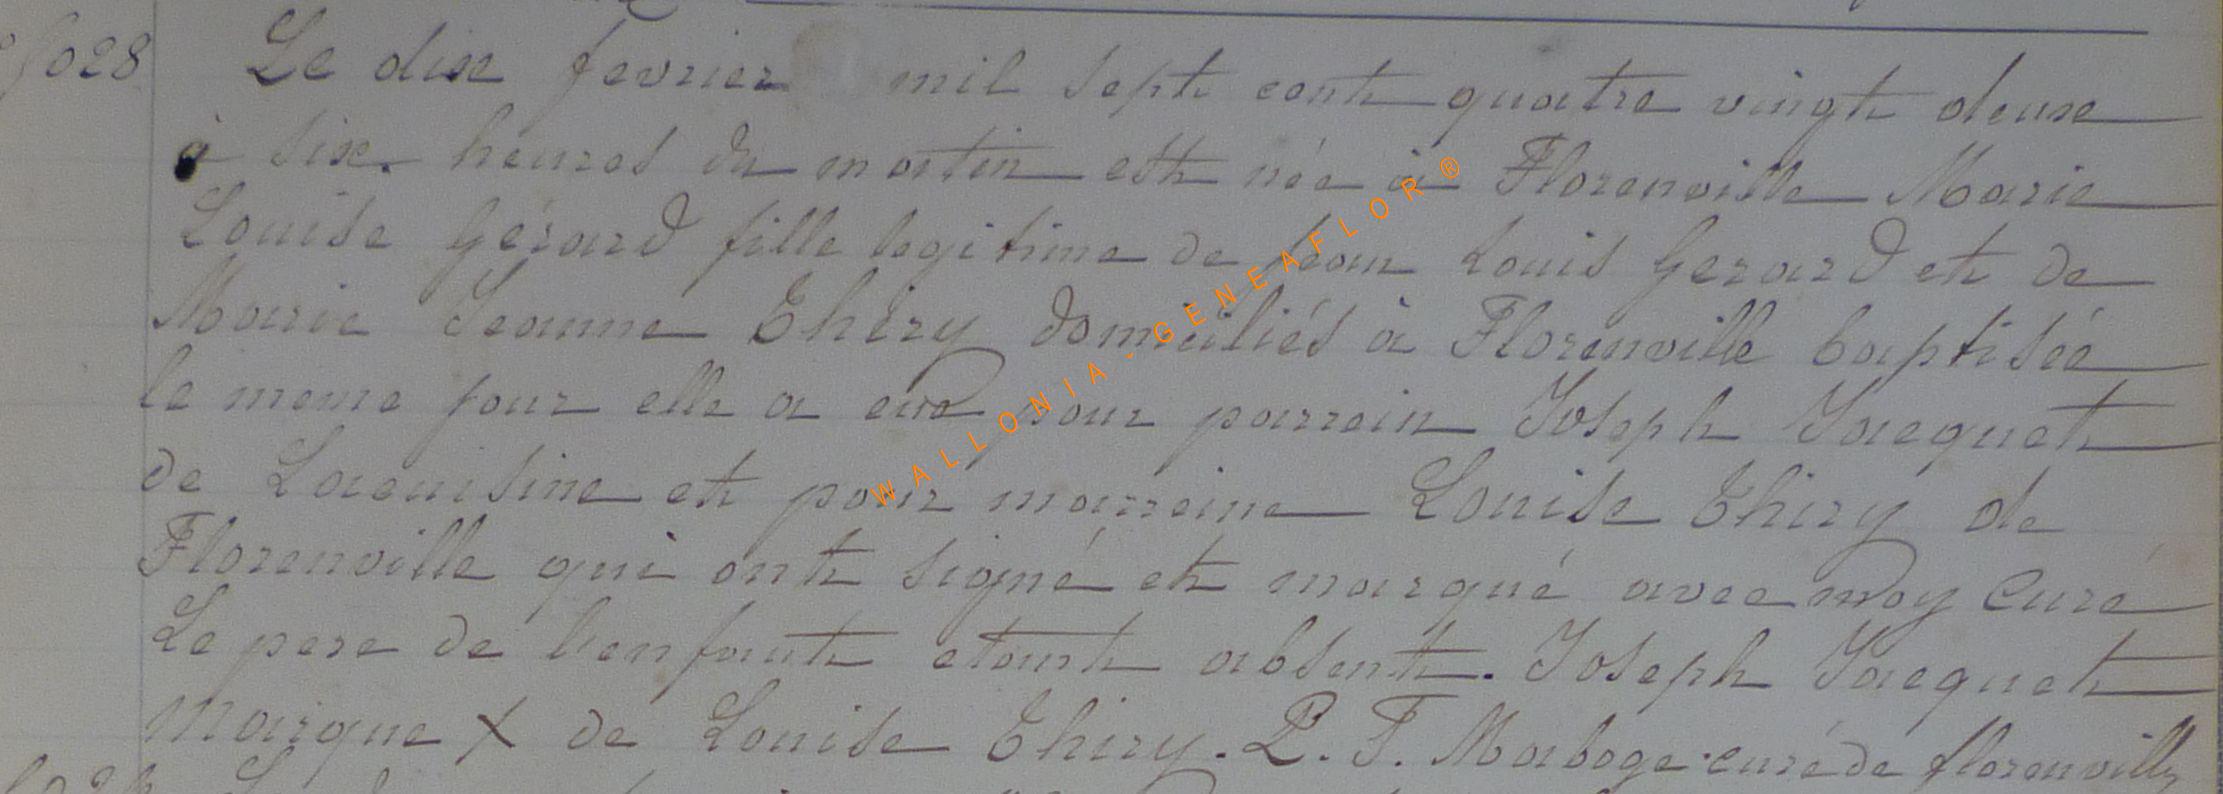 1028 Le dix fevrier mil sept cent quatre vingt deux
à six heures du matin est née à Florenville Marie
Louise Gérard fille legitime de Jean Louis Gerard et de
Marie Jeanne Thiry domiciliés à Florenville baptisée
le meme jour elle a eue pour parrein Joseph Jacquet
de Lacuisine et pour marreine Louise Thiry de
Florenville qui ont signé et marqué avec moy Curé
Le pere de l'enfant etant absent. Joseph Jacquet
marque X de Louise Thiry. P. F. Maboge curé de florenville
WALLONIA-GENEAFLOR®